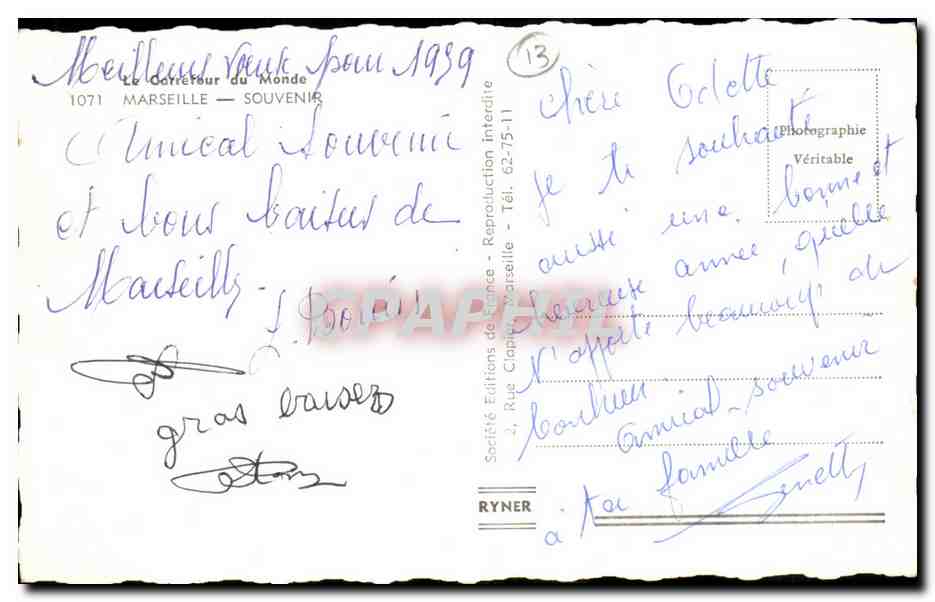 Meilleurs vœux pour 1959
Le Carrefour du Monde
1071 MARSEILLE — SOUVENIR
Amical Souvenir
et bons baisers de
Marseille
gras baisers
Société Editions de France - Reproduction interdite
2, Rue Clapier, Marseille - Tél. 62-75-11
RYNER
13
Photographie
Véritable
Chère Odette
je te souhaite
aussi une bonne et
heureuse année, qu'elle
t'apporte beaucoup de
bonheur.
Amical souvenir
à ta famille
CPAPHIL